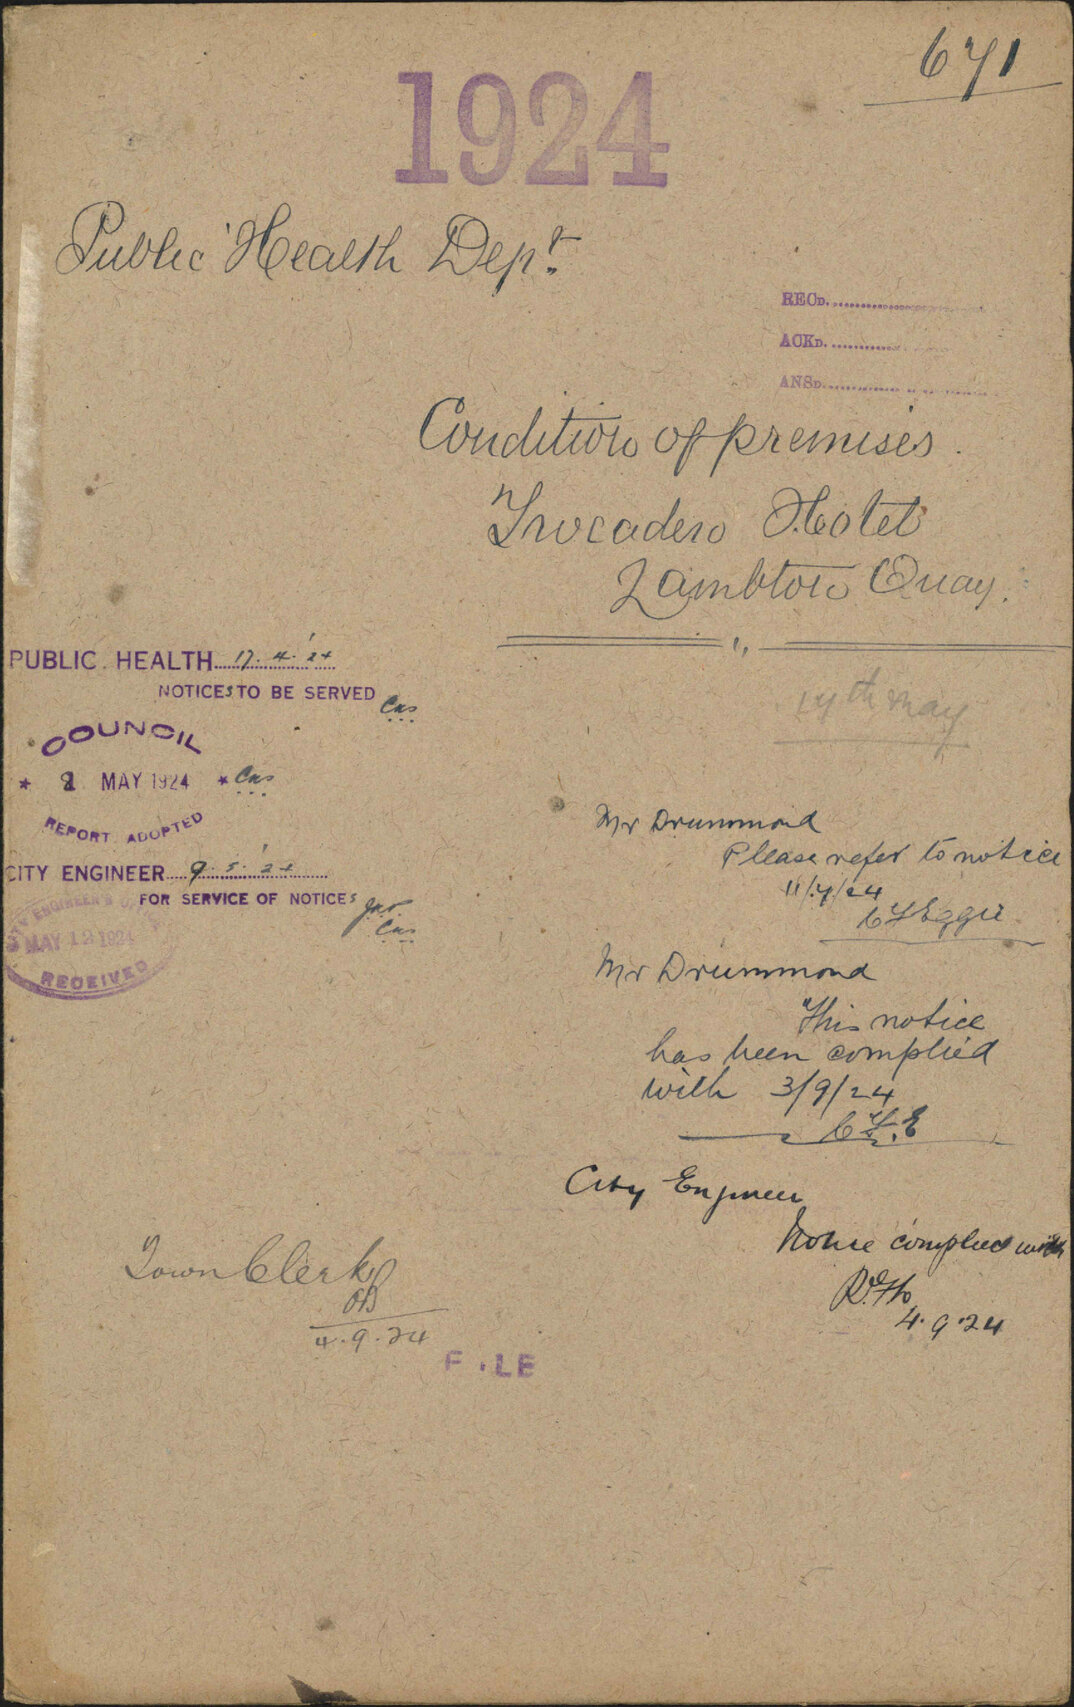 671
1924
Public Health Dept.
RECD.
ACKD.
ANSD.
Condition of premises.
Trocadero Hotel
Lambton Quay.
PUBLIC HEALTH 17.4.'24
NOTICES TO BE SERVED
COUNCIL
MAY 1924
REPORT ADOPTED
CITY ENGINEER 9.5.'24
FOR SERVICE OF NOTICES
CITY ENGINEER'S
MAY 12 1924
RECEIVED
May
Mr Drummond
Please refer to notice
C F Eggie
Mr Drummond
This notice
has been complied
with 3/9/24
C.F.E
City Engineer
Notice complied with
4.9.24
Town Clerk
4.9.24
FILE